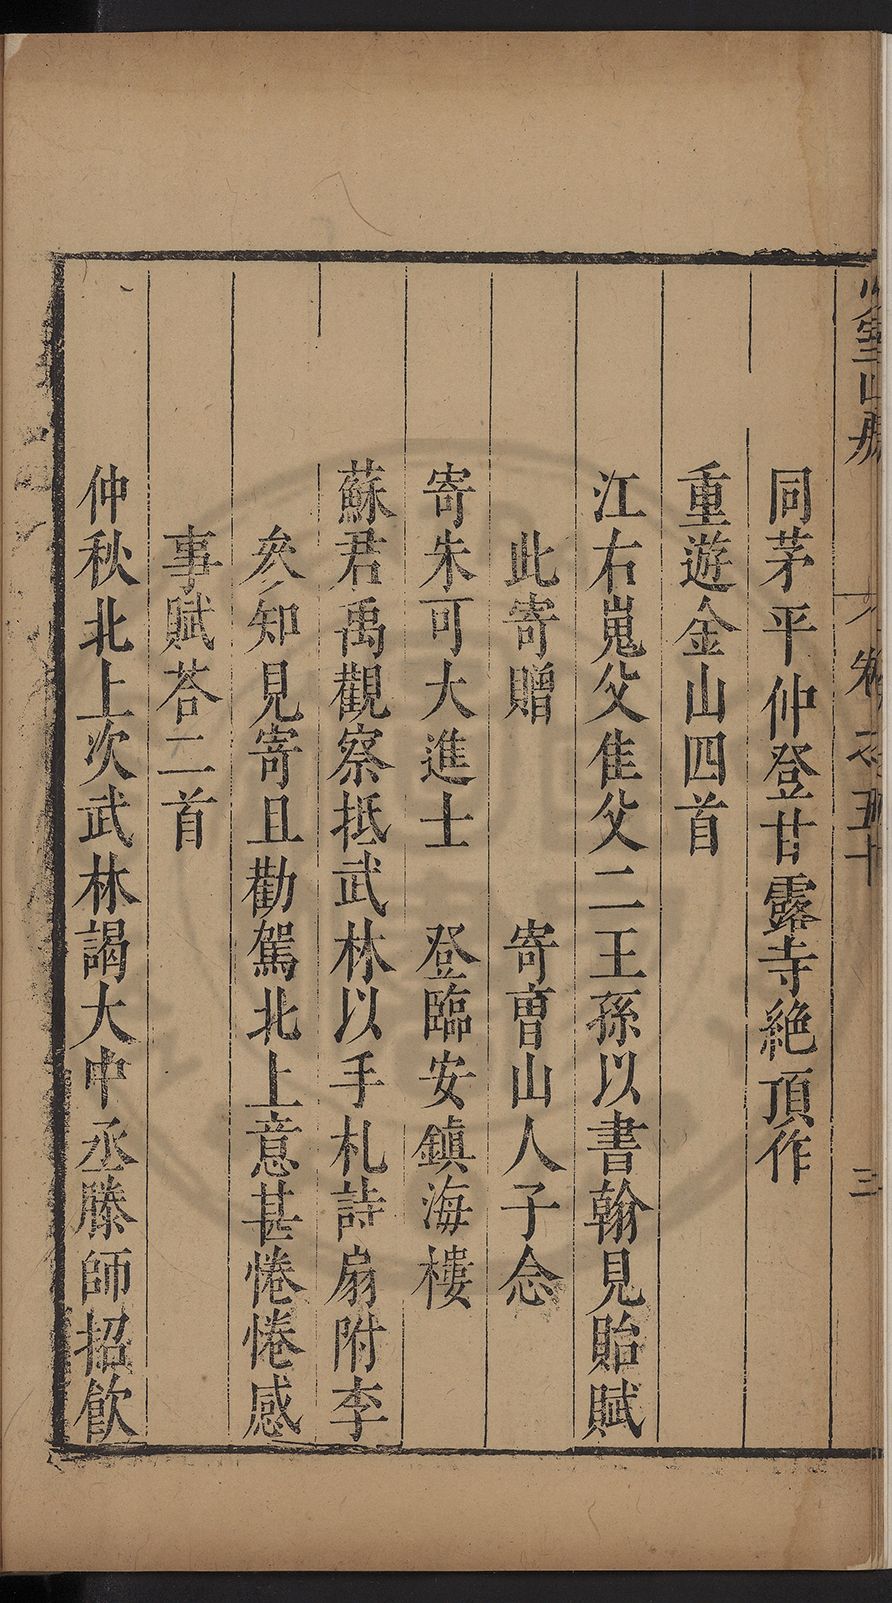 同茅平仲登甘露寺絶頂作
重遊金山四首
江右嵬父隹父二王孫以書翰見貽賦
此寄贈　寄曺山人子念
寄朱可大進士　登臨安鎮海樓
蘇君禹觀察抵武林以手札詩扇附李
叅知見寄且勸駕北上意甚惓惓感
事賦荅二首
仲秋北上次武林謁大中丞滕師招飲